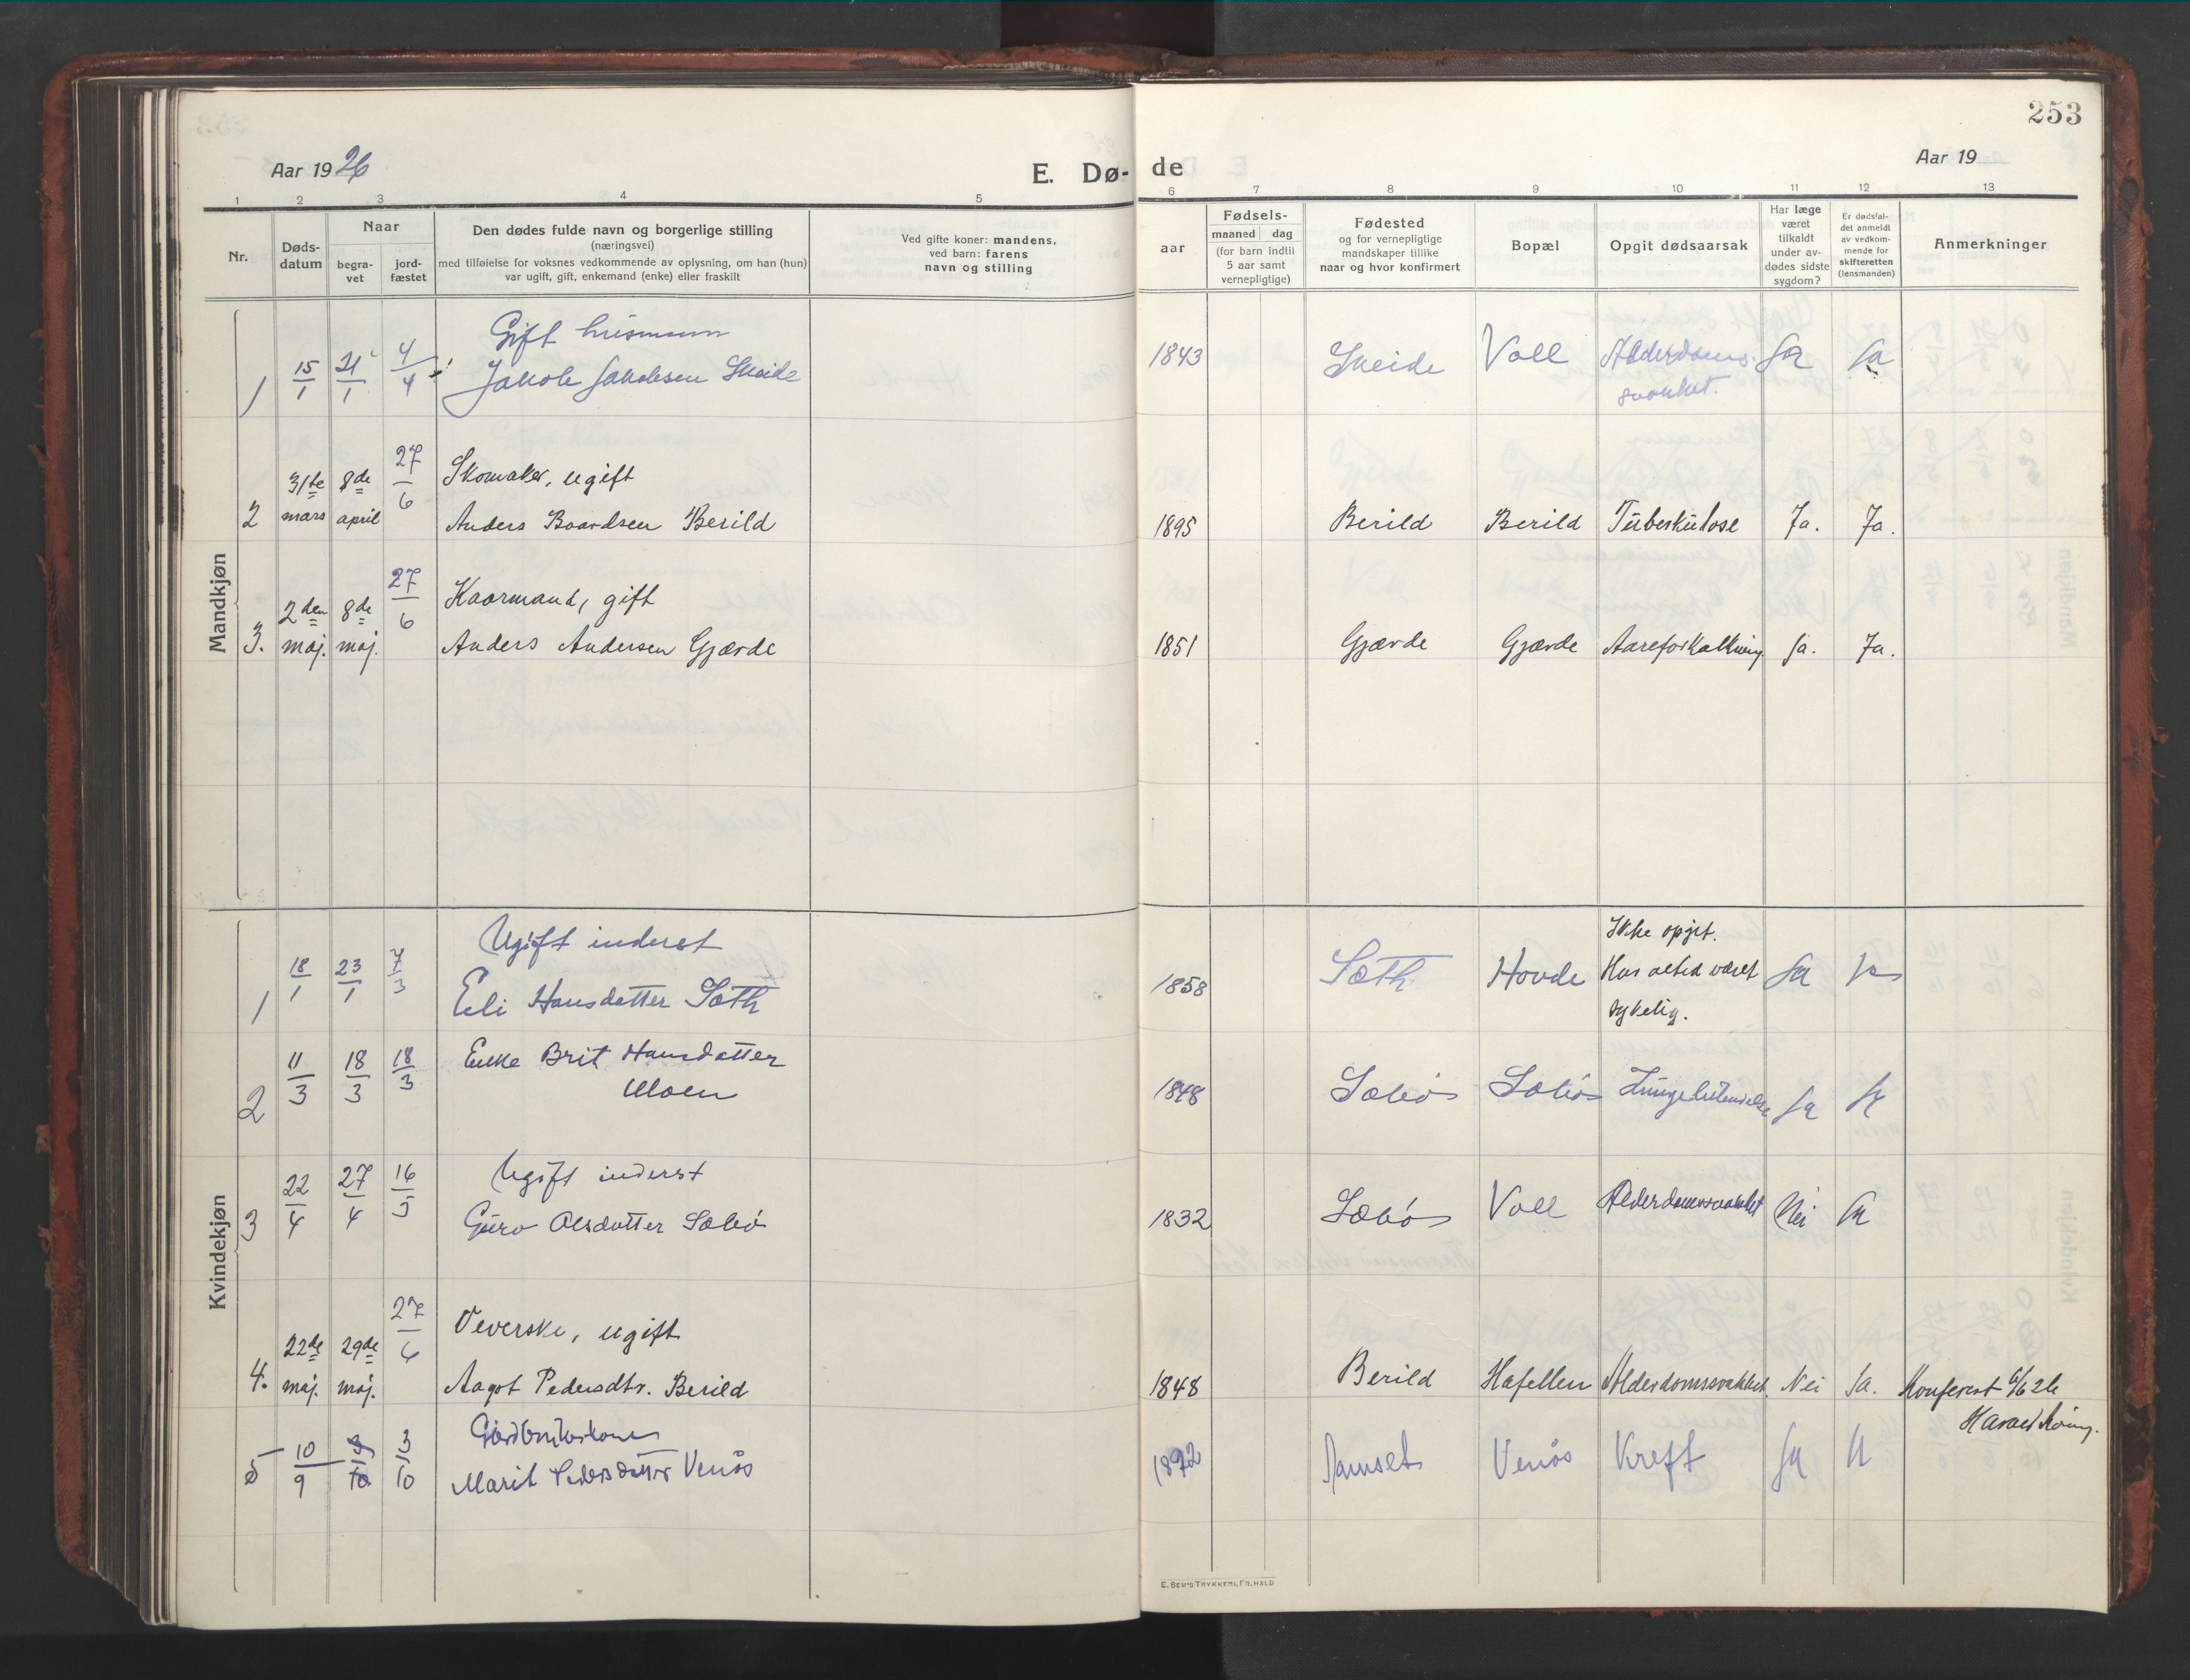 253
Aar 1926
E. Dø-
de
Aar 19
1 2 3 4 5 6 7 8 9 10 11 12 13
Nr.
Døds-
datum
Naar
begra-
vet
jord-
fæstet
Den dødes fulde navn og borgerlige stilling
(næringsvei)
med tilføielse for voksnes vedkommende av oplysning, om han (hun)
var ugift, gift, enkemand (enke) eller fraskilt
Ved gifte koner: mandens,
ved barn: farens
navn og stilling
aar
Fødsels-
maaned dag
(for barn indtil
5 aar samt
vernepligtige)
Fødested
og for vernepligtige
mandskaper tillike
naar og hvor konfirmert
Bopæl
Opgit dødsaarsak
Har læge
været
tilkaldt
under av-
dødes sidste
sygdom?
Er dødsfal-
det anmeldt
av vedkom-
mende for
skifteretten
(lensmanden)
Anmerkninger
Mandkjøn
Gift husmann
1 15/1 21/1 4/4 Jakob Jakobsen Skeide 1843 Skeide Voll Alderdoms- Ja Ja
svakhet.
27/6 Skomaker, ugift
2 31te mars 8de april Anders Baardsen Berild 1895 Berild Berild Tuberkulose Ja. Ja.
27/6 Kaarmand, gift
3. 2den maj. 8de maj. Anders Andersen Gjærde 1851 Gjærde Gjærde Aareforkalkning Ja. Ja.
Kvindekjøn
Ugift inderst Ikke opgit.
1 18/1 23/1 7/3 Eli Hansdatter Sæth 1858 Sæth Hovde Har altid været Ja Ja
sykelig.
2 11/3 18/3 18/3 Enke Brit Hansdatter
Moen 1848 Sæbøs Sæbøs Lungebetendelse Ja Ja
Ugift inderst
3 22/4 27/4 16/5 Guro Olsdatter Sæbø 1832 Sæbøs Voll Alderdomssvakhet Nei Ja
27/6 Veverske, ugift
4. 22de maj. 29de maj. Aagot Pedersdtr. Berild 1848 Berild Hafellen Alderdomssvakhet. Nei Ja. Konferert 6/6 26
Harald
Gårdbrukerkone
5 10/9 3/10 Marit Pedersdatter Venås 1892 Venås Kreft Ja Ja
E. SEM'S TRYKKERI, FR.HALD